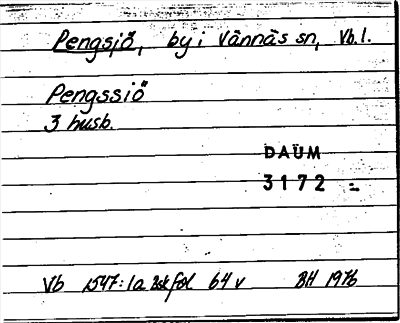 Pengsjö, by i Vännäs sn, Vb. l.
Pengssiö
3 husb.
DAÜM
3172
Vb 1547:1a skfol 64 v BH 1976